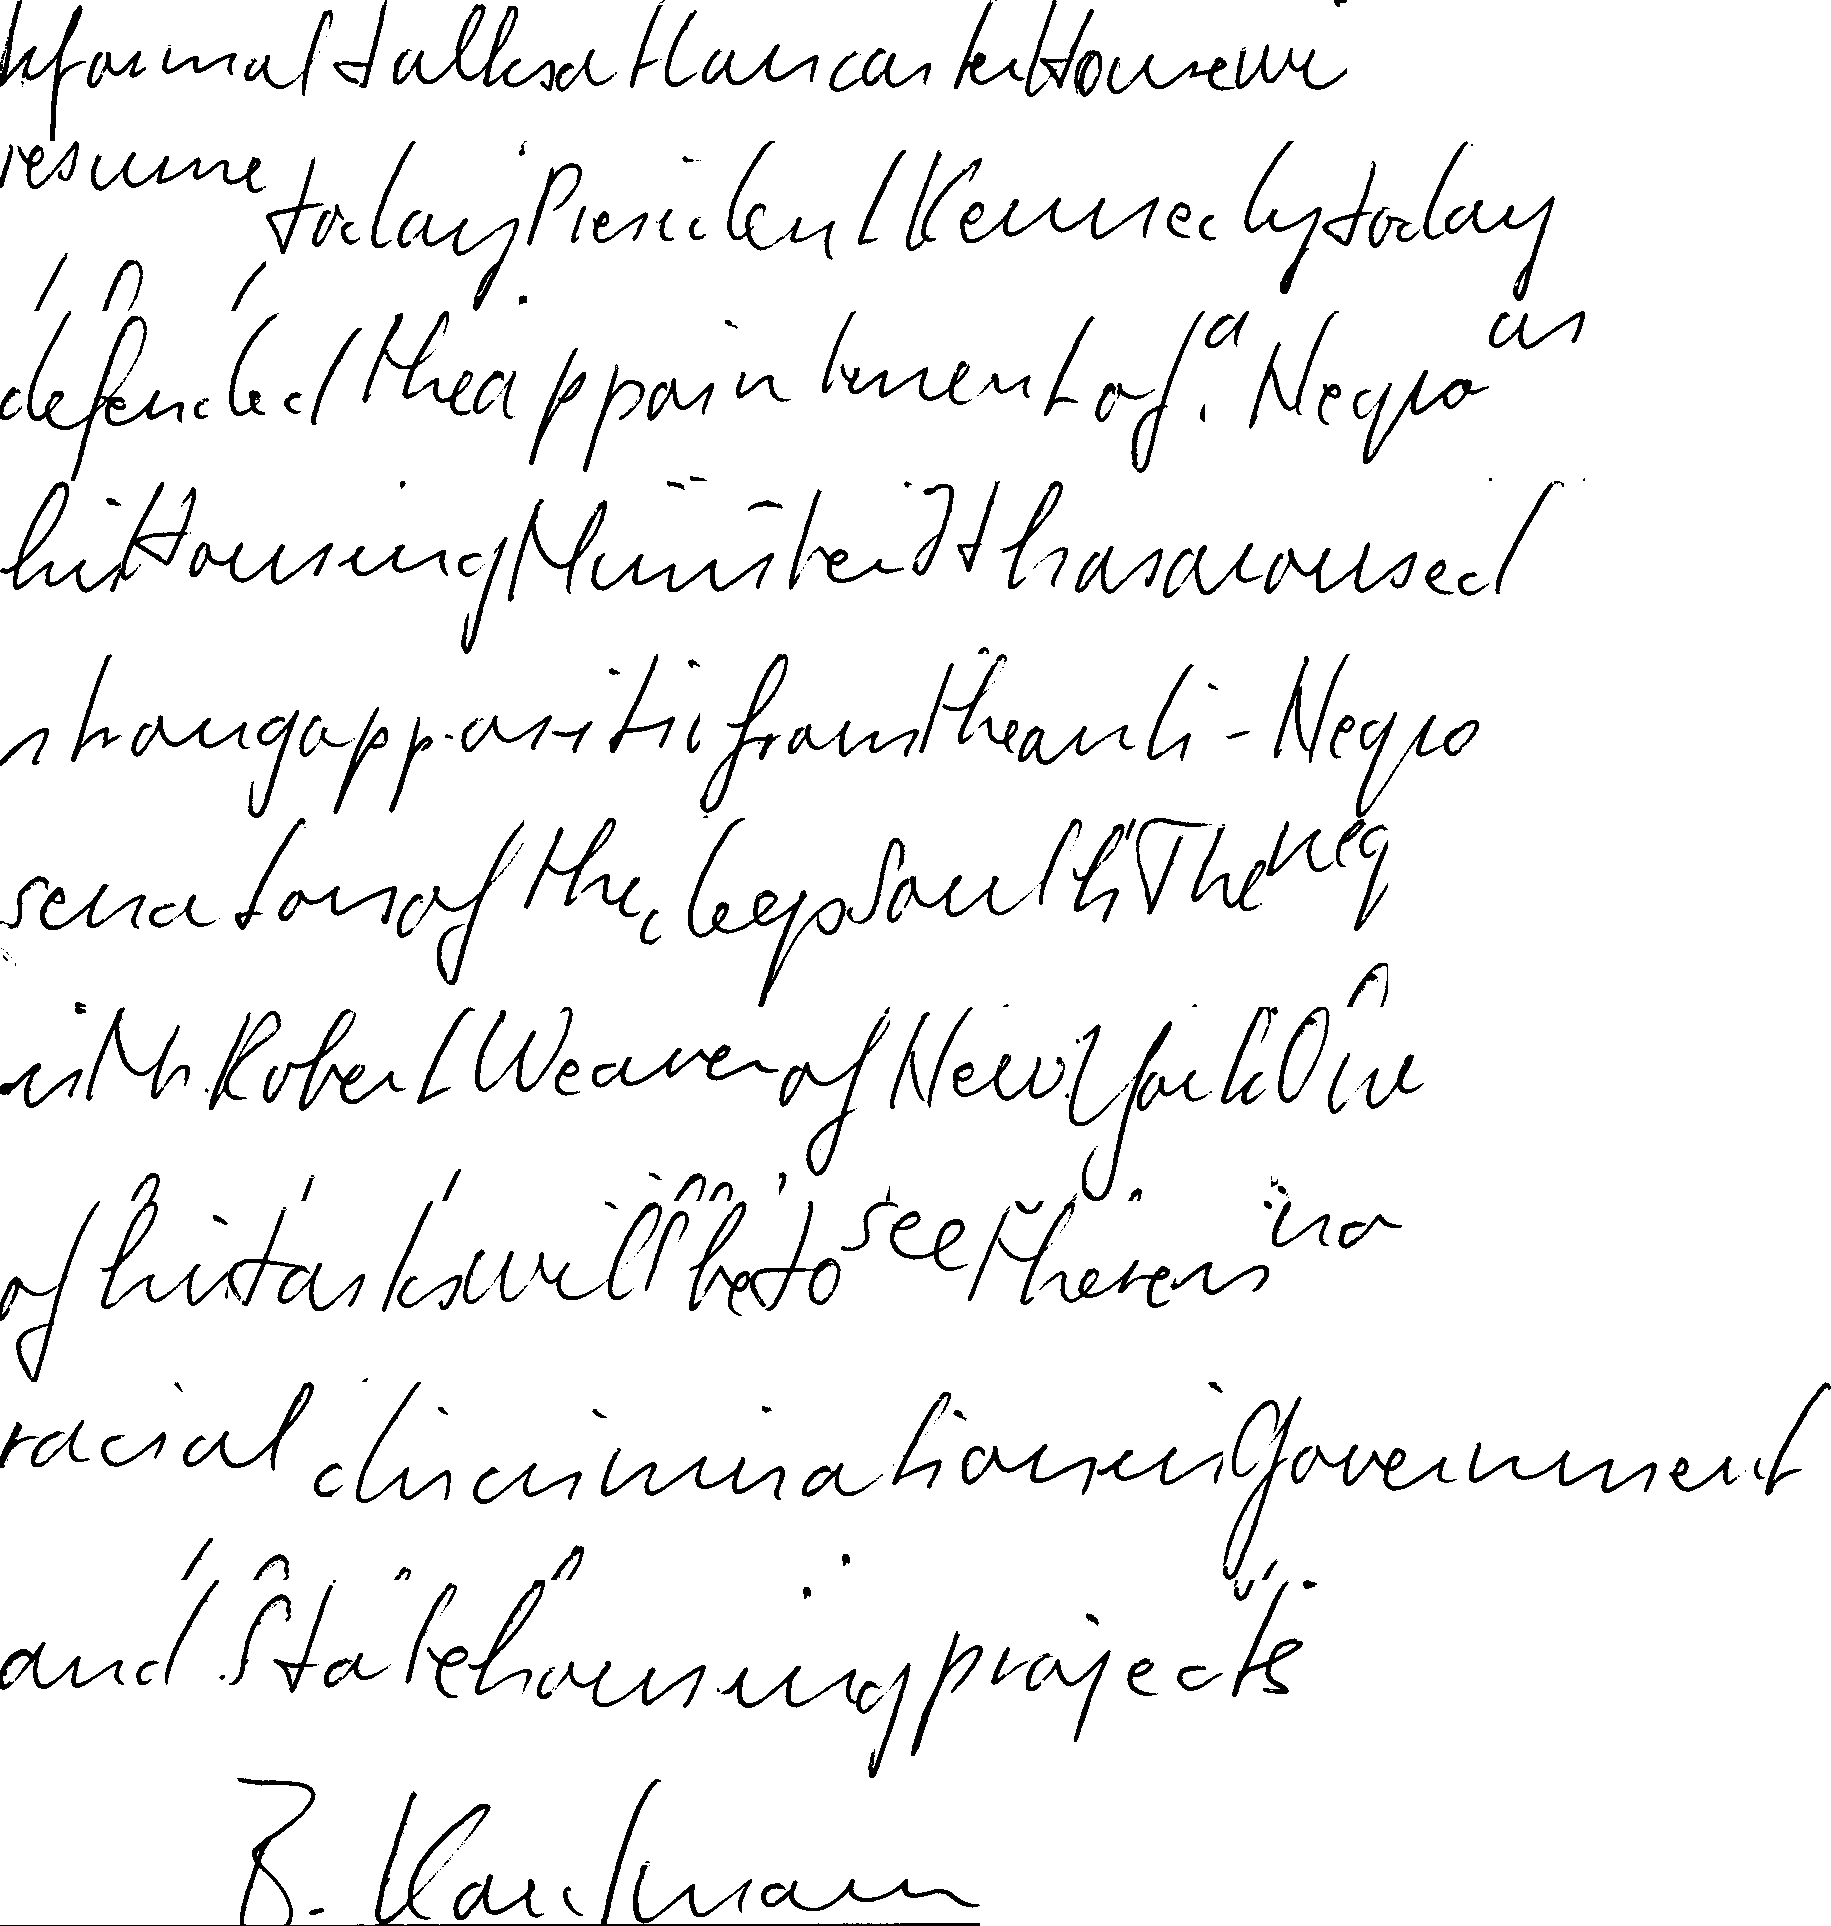 Informal talks at Lancaster House wi
resume today President Kennedy today
defended the appointment of a Negro as
his Housing Minister It has aroused
strong oppositi from the anti - Negro
senators of the deep South The neg
is Mr Robert Weaver of New York One
of his tasks will be to see there is no
racial discrimination in Government
and State housing projects